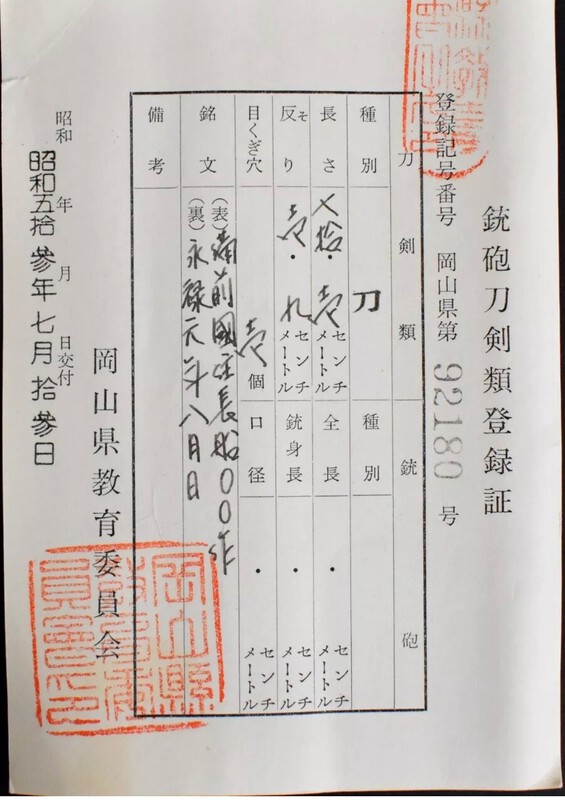 銃砲刀剣類登録証
登録記号番号 岡山県第 92180 号
刀剣類
銃砲
種別 刀
種別
長さ 拾・壱 センチメートル
全長 ・ センチメートル
反り そ 壱・ センチメートル
銃身長 ・ センチメートル
目くぎ穴 壱個
口径 ・ センチメートル
銘文 (表) 備前國住長船〇〇作
(裏) 永禄元年八月日
備考
岡山県教育委員会
昭和 年 月 日交付
昭和五拾參年七月拾參日
岡山縣教育委員會印